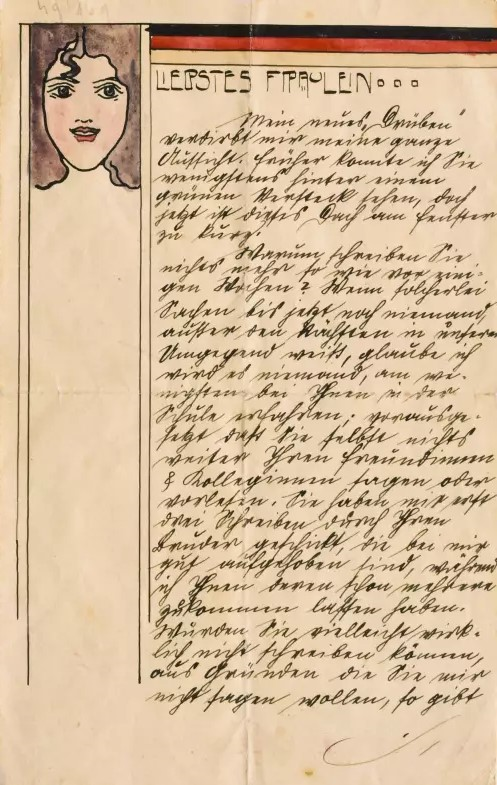 LIEBSTES FRÄULEIN...
Mein neues „Drüben"
verdirbt mir meine ganze
Aussicht. Früher konnte ich Sie
wenigstens hinter einem
grünen Versteck sehen, doch
jetzt ist dieses Dach am Fenster
zu kurz.
Warum schreiben Sie
nichts mehr so wie vor eini-
gen Wochen? Wenn solcherlei
Sachen bis jetzt noch niemand
außer den Nächsten in unserer
Umgegend weiß, glaube ich
wird es niemand, am we-
nigsten bei Ihnen in der
Schule erfahren; vorausge-
setzt daß Sie selbst nichts
weiter Ihren Freundinnen
& Kolleginnen sagen oder
vorlesen. Sie haben mir erst
drei Schreiben durch Ihren
Bruder geschickt, die bei mir
gut aufgehoben sind, während
ich Ihnen deren schon mehrere
zukommen lassen haben.
Würden Sie vielleicht wirk-
lich nicht schreiben können,
aus Gründen die Sie mir
nicht sagen wollen, so gibt